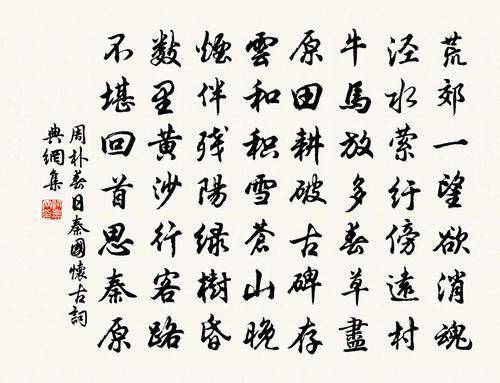 荒郊一望欲消魂
泾水萦纡傍遠村
牛馬放多春草盡
原田耕破古碑存
雲和积雪蒼山晚
煙伴残陽绿樹昏
数里黄沙行客路
不堪回首思秦原
周朴春日秦國懷古詞
典網集